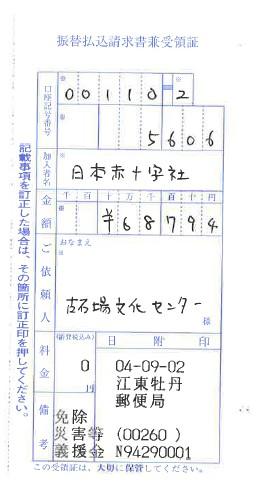 振替払込請求書兼受領証
口座記号番号
00110 2
5606
加入者名
日本赤十字社
金額
千 百 十 万 千 百 十 円
¥68794
ご依頼人
おなまえ
古石場文化センター
様
料金
(消費税込み)
0 円
日附印
04-09-02
江東牡丹
郵便局
備考
免除
災害等 (00260)
義援金 N94290001
この受領証は、大切に保管してください。
記載事項を訂正した場合は、その箇所に訂正印を押してください。